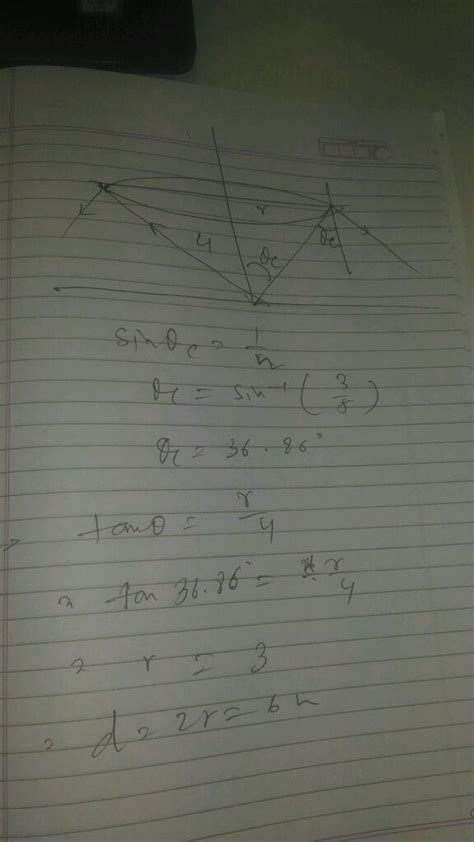 r
4
θc
θc
sinθc = 1/n
θc = sin⁻¹ (3/5)
θc = 36.86°
tanθ = r/4
tan 36.86° = r/4
r = 3
d = 2r = 6